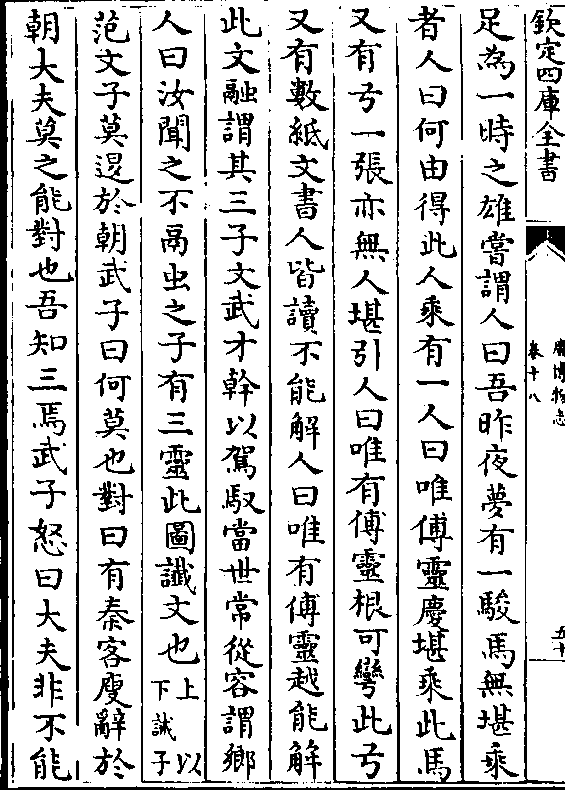 欽定四庫全書
廣博物志
卷十八
五十
足為一時之雄嘗謂人曰吾昨夜夢有一駿馬無堪乘
者人曰何由得此人乘有一人曰唯傅靈慶堪乘此馬
又有弓一張亦無人堪引人曰唯有傅靈根可彎此弓
又有數紙文書人皆讀不能解人曰唯有傅靈越能解
此文融謂其三子文武才幹以駕馭當世常從容謂鄉
人曰汝聞之不鬲虫之子有三靈此圖讖文也上以
下誡子
范文子莫退於朝武子曰何莫也對曰有秦客廋辭於
朝大夫莫之能對也吾知三焉武子怒曰大夫非不能